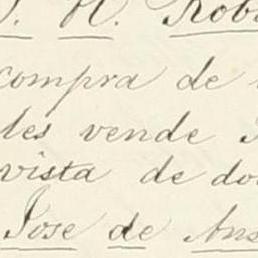 H. Rob
compra de
les vende
vista de do
Jose de Ans